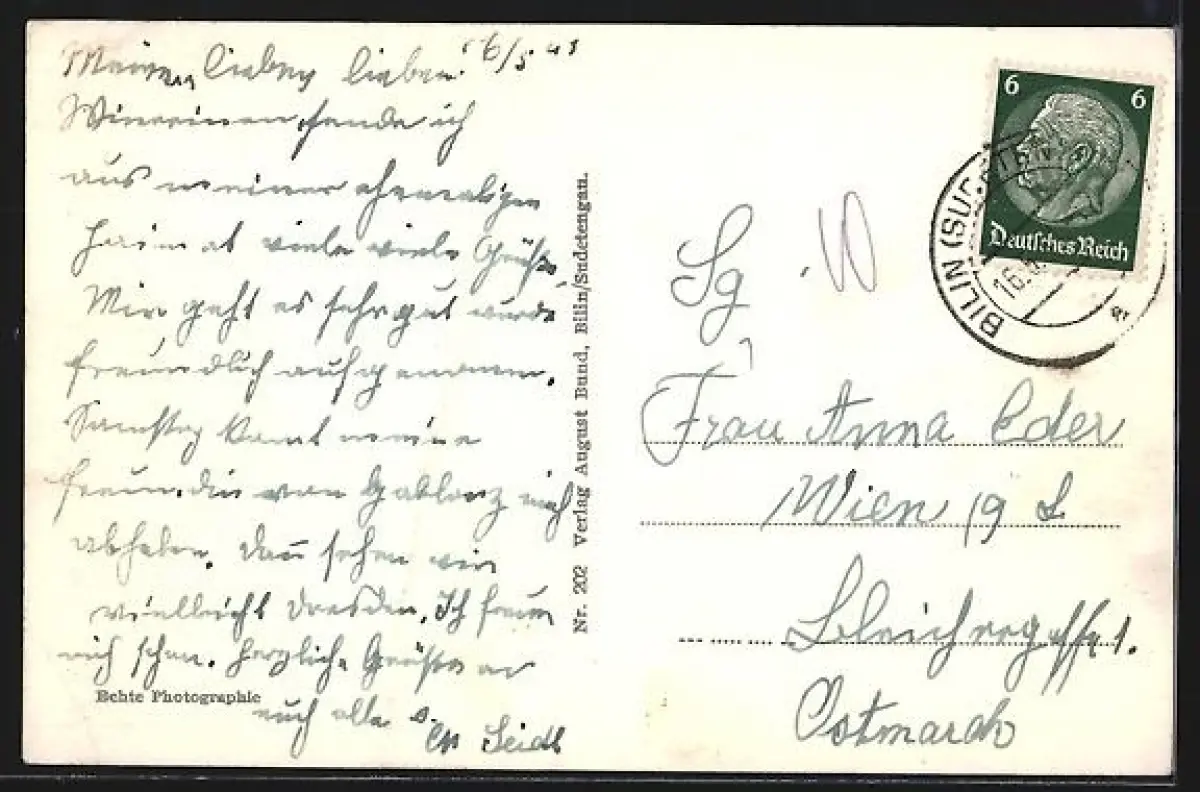 Meinen lieben lieben 16/5 41
Wienerinen sende ich
aus meiner ehemaligen
Heimat viele viele Grüße
Mir geht es sehr gut wurde
freundlich aufgenomen.
Samstag komt meine
Freundin von Gablonz mich
abholen. Dan̄ sehen wir
vielleicht Dresden. Ich freue
mich schon. Herzliche Grüße an
euch alle
Seidl
Echte Photographie
Nr. 202 Verlag August Bund, Bilin/Sudetengau.
6 6
Deutsches Reich
BILIN (SUD
16.
a
Sg
Frau Anna Eder
Wien 19 L
Bleichergasse 1.
Ostmarck